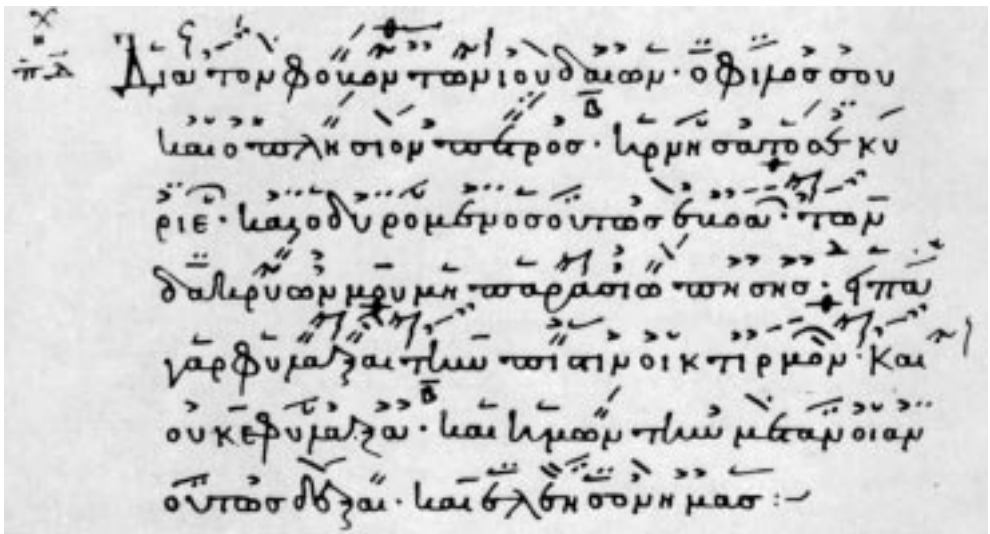 Δια τον φοβον των ιουδαιων · ο φιλοσ σου
και ο πλησιον πετροσ · ηρνησατο σε κυ
ριε · και οδυρομενοσ ουτωσ εβοα · των
δακρυων μου μη παρασιωπησησ · ειπα
γαρ φυλαξαι την πιστιν οικτιρμον · και
ουκ εφυλαξα · και ημων την μετανοιαν
ουτωσ δεξαι · και ελεησον ημασ :